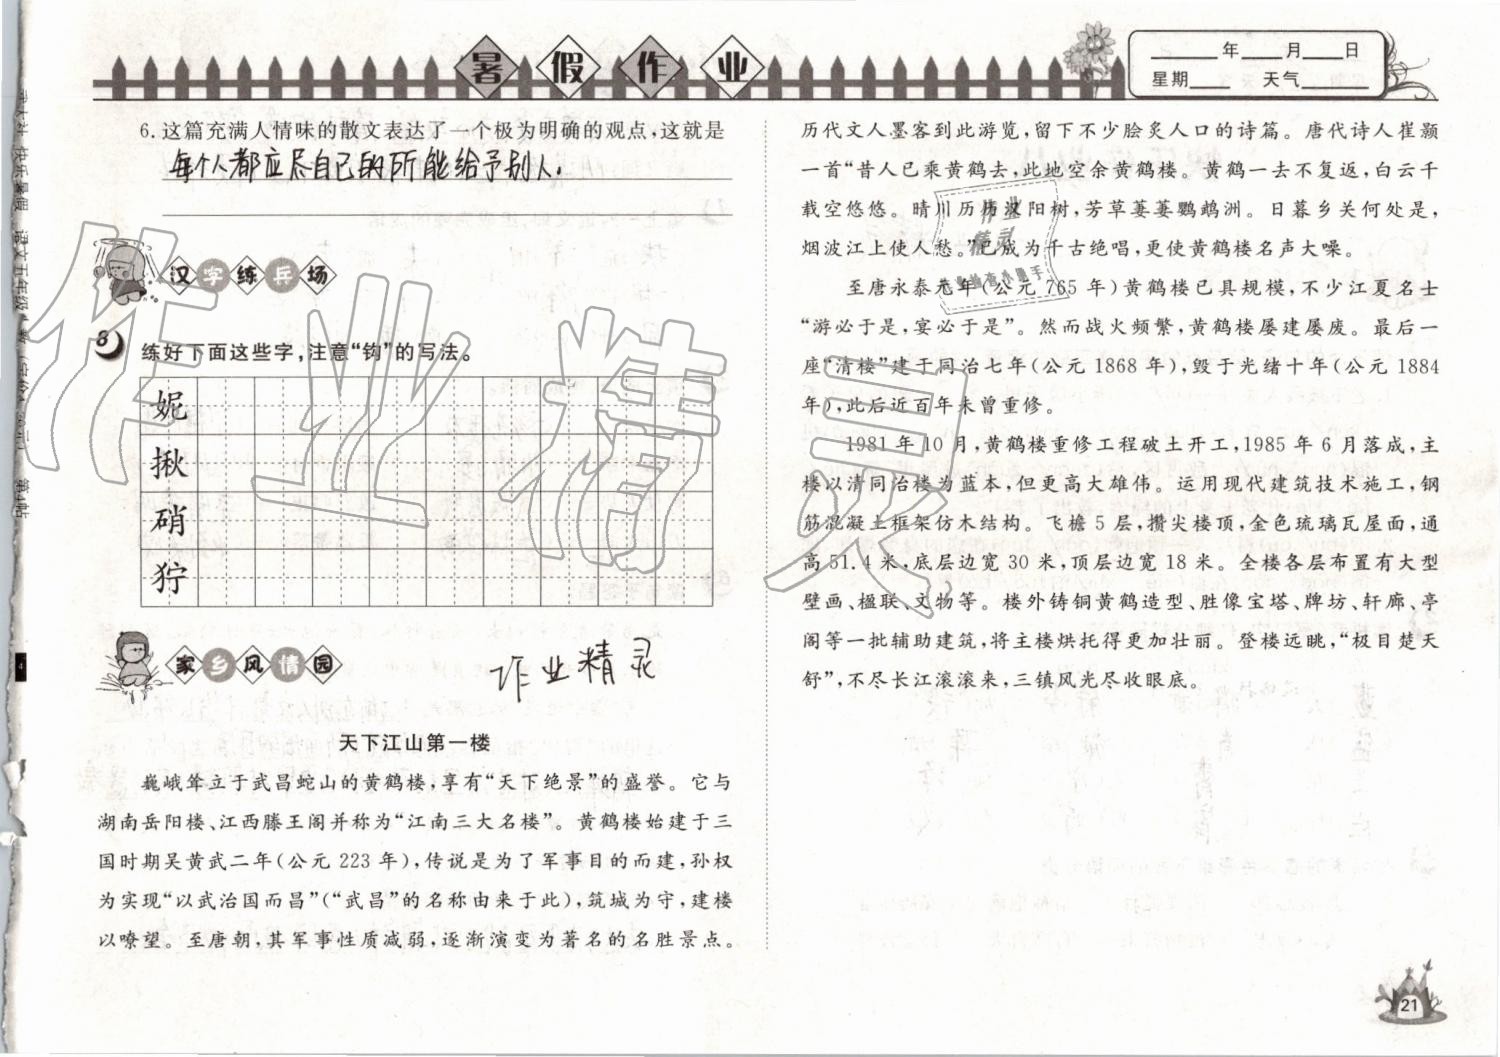 暑假作业
____年___月___日
星期____ 天气______
6.这篇充满人情味的散文表达了一个极为明确的观点,这就是
每个人都应尽自己的所能给予别人.
汉字练兵场
8
练好下面这些字,注意“钩”的写法。
妮
揪
硝
狞
家乡风情园
作业精灵
天下江山第一楼
巍峨耸立于武昌蛇山的黄鹤楼,享有“天下绝景”的盛誉。它与
湖南岳阳楼、江西滕王阁并称为“江南三大名楼”。黄鹤楼始建于三
国时期吴黄武二年(公元 223 年),传说是为了军事目的而建,孙权
为实现“以武治国而昌”(“武昌”的名称由来于此),筑城为守,建楼
以嘹望。至唐朝,其军事性质减弱,逐渐演变为著名的名胜景点。
历代文人墨客到此游览,留下不少脍炙人口的诗篇。唐代诗人崔颢
一首“昔人已乘黄鹤去,此地空余黄鹤楼。黄鹤一去不复返,白云千
载空悠悠。晴川历历汉阳树,芳草萋萋鹦鹉洲。日暮乡关何处是,
烟波江上使人愁。”已成为千古绝唱,更使黄鹤楼名声大噪。
至唐永泰元年(公元 765 年)黄鹤楼已具规模,不少江夏名士
“游必于是,宴必于是”。然而战火频繁,黄鹤楼屡建屡废。最后一
座“清楼”建于同治七年(公元 1868 年),毁于光绪十年(公元 1884
年),此后近百年未曾重修。
1981 年 10 月,黄鹤楼重修工程破土开工,1985 年 6 月落成,主
楼以清同治楼为蓝本,但更高大雄伟。运用现代建筑技术施工,钢
筋混凝土框架仿木结构。飞檐 5 层,攒尖楼顶,金色琉璃瓦屋面,通
高 51.4 米,底层边宽 30 米,顶层边宽 18 米。全楼各层布置有大型
壁画、楹联、文物等。楼外铸铜黄鹤造型、胜像宝塔、牌坊、轩廊、亭
阁等一批辅助建筑,将主楼烘托得更加壮丽。登楼远眺,“极目楚天
舒”,不尽长江滚滚来,三镇风光尽收眼底。
作业精灵
21